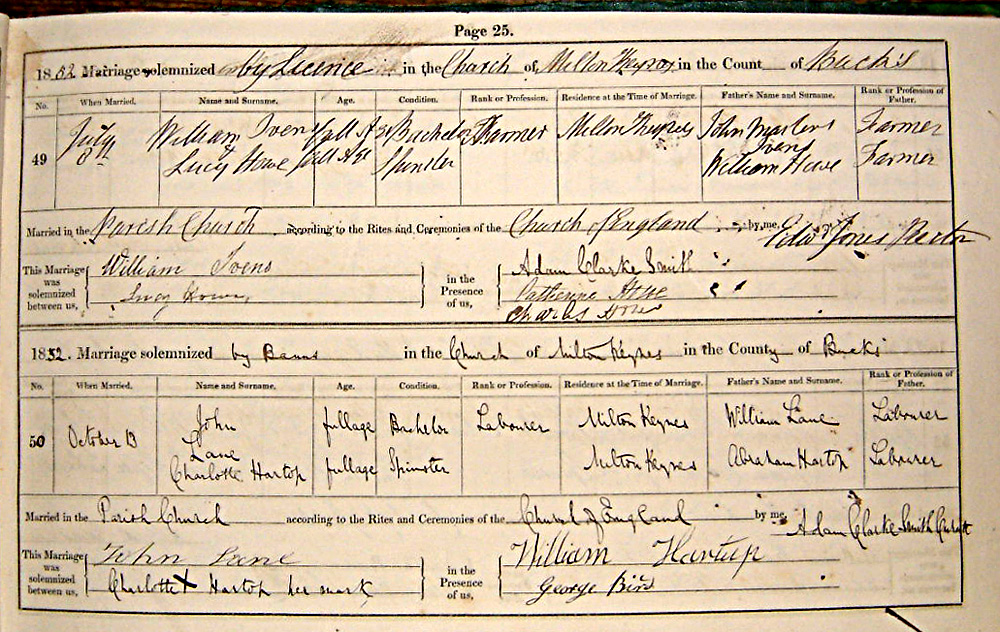 Page 25.
1852. Marriage solemnized by Licence in the Church of Milton Keynes in the Count of Buck's
No. When Married. Name and Surname. Age. Condition. Rank or Profession. Residence at the Time of Marriage. Father's Name and Surname. Rank or Profession of Father.
49 July 8th William Ivens full Age Bachelor Farmer Milton Keynes John Martens Ivens Farmer
& Lucy Howe full Age Spinster William Howe Farmer
Married in the Parish Church according to the Rites and Ceremonies of the Church of England by me, Edw Jones Rector
This Marriage was solemnized between us, William Ivens
Lucy Howe
in the Presence of us, Adam Clarke Smith
Catherine Howe
Charles Howe
1852. Marriage solemnized by Banns in the Church of Milton Keynes in the County of Bucks
No. When Married. Name and Surname. Age. Condition. Rank or Profession. Residence at the Time of Marriage. Father's Name and Surname. Rank or Profession of Father.
50 October 13 John Lane full age Bachelor Labourer Milton Keynes William Lane Labourer
Charlotte Hartop full age Spinster Milton Keynes Abraham Hartop Labourer
Married in the Parish Church according to the Rites and Ceremonies of the Church of England by me, Adam Clarke Smith Curate
This Marriage was solemnized between us, John Lane
Charlotte X Hartop her mark
in the Presence of us, William Hartup
George Bird